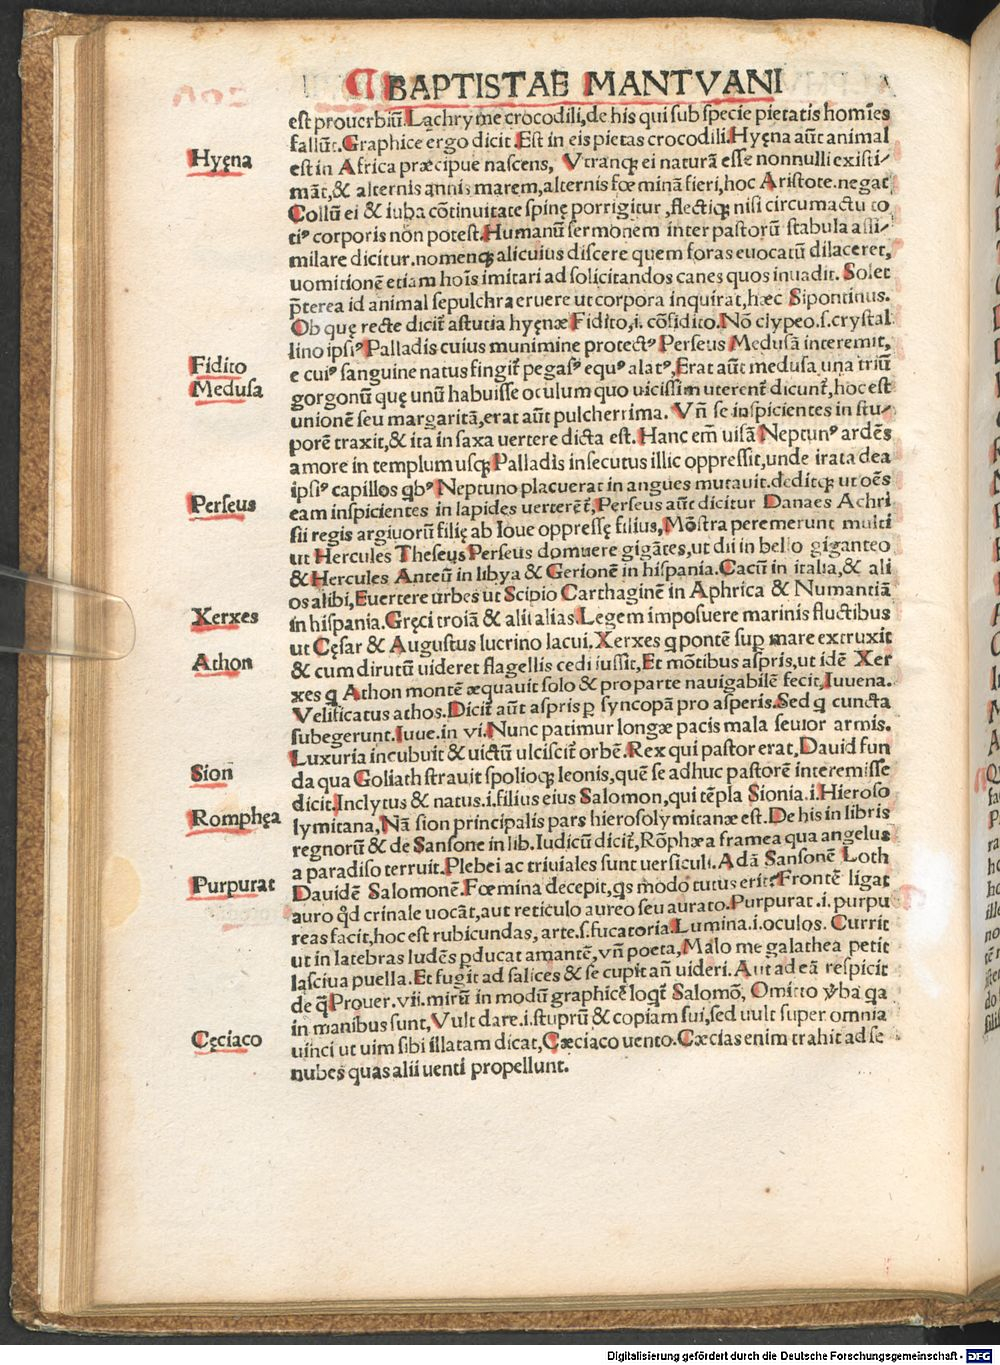 ¶ BAPTISTAE MANTVANI
est prouerbiū. Lachryme crocodili, de his qui sub specie pietatis homīes
fallūt. Graphice ergo dicit. Est in eis pietas crocodili. Hyęna aūt animal
Hyęna
est in Africa præcipue nascens, Vtranqꝫ ei naturā esse nonnulli existi/
māt, & alternis annis marem, alternis fœminā fieri, hoc Aristote. negat
Collū ei & iuba cōtinuitate spinę porrigitur, flectiqꝫ nisi circumactu to
tiꝰ corporis non potest. Humanū sermonem inter pastorū stabula assi/
milare dicitur. nomenqꝫ alicuius discere quem foras euocatū dilaceret,
uomitionē etiam hoīs imitari ad solicitandos canes quos inuadit. Solet
p̄terea id animal sepulchra eruere ut corpora inquirat, hæc Sipontinus.
Ob quę recte dicit̄ astutia hyęnæ Fidito, i. cōfidito. Nō clypeo. s. crystal
lino ipsiꝰ Palladis cuius munimine protectꝰ Perseus Medusā interemit,
Fidito
e cuiꝰ sanguine natus fingit̄ pegasꝰ equꝰ alatꝰ, Erat aūt medusa una triū
Medusa
gorgonū quę unū habuisse oculum quo uicissim uterent̄ dicunt̄, hoc est
unionē seu margaritā, erat aūt pulcherrima. Vn̄ se inspicientes in stu/
porē traxit, & ita in saxa uertere dicta est. Hanc em̄ uisā Neptunꝰ ardēs
amore in templum usqꝫ Palladis insecutus illic oppressit, unde irata dea
ipsiꝰ capillos qbꝰ Neptuno placuerat in angues mutauit. deditqꝫ ut oēs
Perseus
eam inspicientes in lapides uerterēt̄, Perseus aūt dicitur Danaes Achri
sii regis argiuorū filię ab Ioue oppressę filius, Mōstra peremerunt multi
ut Hercules Theseus Perseus domuere gigātes, ut dii in bello giganteo
& Hercules Anteū in libya & Gerionē in hispania. Cacū in italia, & ali
os alibi, Euertere urbes ut Scipio Carthaginē in Aphrica & Numantiā
Xerxes
in hispania. Gręci troiā & alii alias. Legem imposuere marinis fluctibus
ut Cęsar & Augustus lucrino lacui. Xerxes q pontē sup mare extruxit
Athon
& cum dirutū uideret flagellis cedi iussit, Et mōtibus aspris, ut idē Xer
xes q Athon montē æquauit solo & pro parte nauigabilē fecit, Iuuena.
Velificatus athos. Dicit̄ aūt aspris p syncopā pro asperis. Sed q cuncta
subegerunt. Iuue. in vi. Nunc patimur longæ pacis mala seuior armis.
Luxuria incubuit & uictū ulciscit̄ orbē. Rex qui pastor erat, Dauid fun
Sion
da qua Goliath strauit spolioqꝫ leonis, quē se adhuc pastorē interemisse
dicit. Inclytus & natus. i. filius eius Salomon, qui tēpla Sionia. i. Hieroso
Romphęa
lymitana, Nā sion principalis pars hierosolymitanæ est. De his in libris
regnorū & de Sansone in lib. Iudicū dicit̄, Rōphæa framea qua angelus
a paradiso terruit. Plebei ac triuiales sunt uersiculi. Adā Sansonē Loth
Purpurat
Dauidē Salomonē. Fœmina decepit, qs modo tutus erit? Frontē ligat
auro qd̄ crinale uocāt, aut reticulo aureo seu aurato. Purpurat. i. purpu
reas facit, hoc est rubicundas, arte. s. fucatoria. Lumina. i. oculos. Currit
ut in latebras ludēs pducat amantē, vn̄ poeta, Malo me galathea petit
lasciua puella. Et fugit ad salices & se cupit an̄ uideri. Aut ad eā respicit
de q̄ Prouer. vii. mirū in modū graphicē loqt̄ Salomō, Omitto ꝟba qa
in manibus sunt, Vult dare. i. stuprū & copiam sui, sed uult super omnia
Cęciaco
uinci ut uim sibi illatam dicat, Cæciaco uento. Cæcias enim trahit ad se
nubes quas alii uenti propellunt.
Digitalisierung gefördert durch die Deutsche Forschungsgemeinschaft - DFG